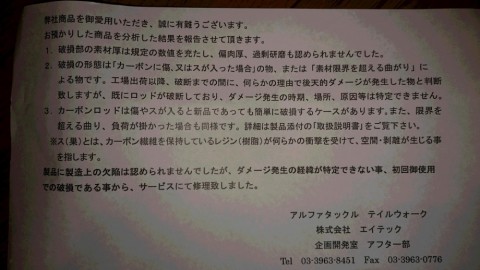 弊社商品を御愛用いただき、誠に有難うございます。
お預かりした商品を分析した結果を報告させて頂きます。
1．破損部の素材厚は規定の数値を充たし、偏肉厚、過剰研磨も認められませんでした。
2．破損の形態は「カーボンに傷、又はスが入った場合」の物、または「素材限界を超える曲がり」に
よる物です。工場出荷以降、破断までの間に、何らかの理由で後天的ダメージが発生した物と判断
致しますが、既にロッドが破断しており、ダメージ発生の時期、場所、原因等は特定できません。
3．カーボンロッドは傷やスが入ると新品であっても簡単に破損するケースがあります。また、限界
を超える曲り、負荷が掛かった場合も同様です。詳細は製品添付の「取扱説明書」をご覧下さい。
※ス（巣）とは、カーボン繊維を保持しているレジン（樹脂）が何らかの衝撃を受けて、空間・剥離が生じる事
を指します。
製品に製造上の欠陥は認められませんでしたが、ダメージ発生の経緯が特定できない事、初回御使用
での破損である事から、サービスにて修理致しました。
アルファタックル　テイルウォーク
株式会社　エイテック
企画開発室　アフター部
Tel　03-3963-8451　Fax　03-3963-0776